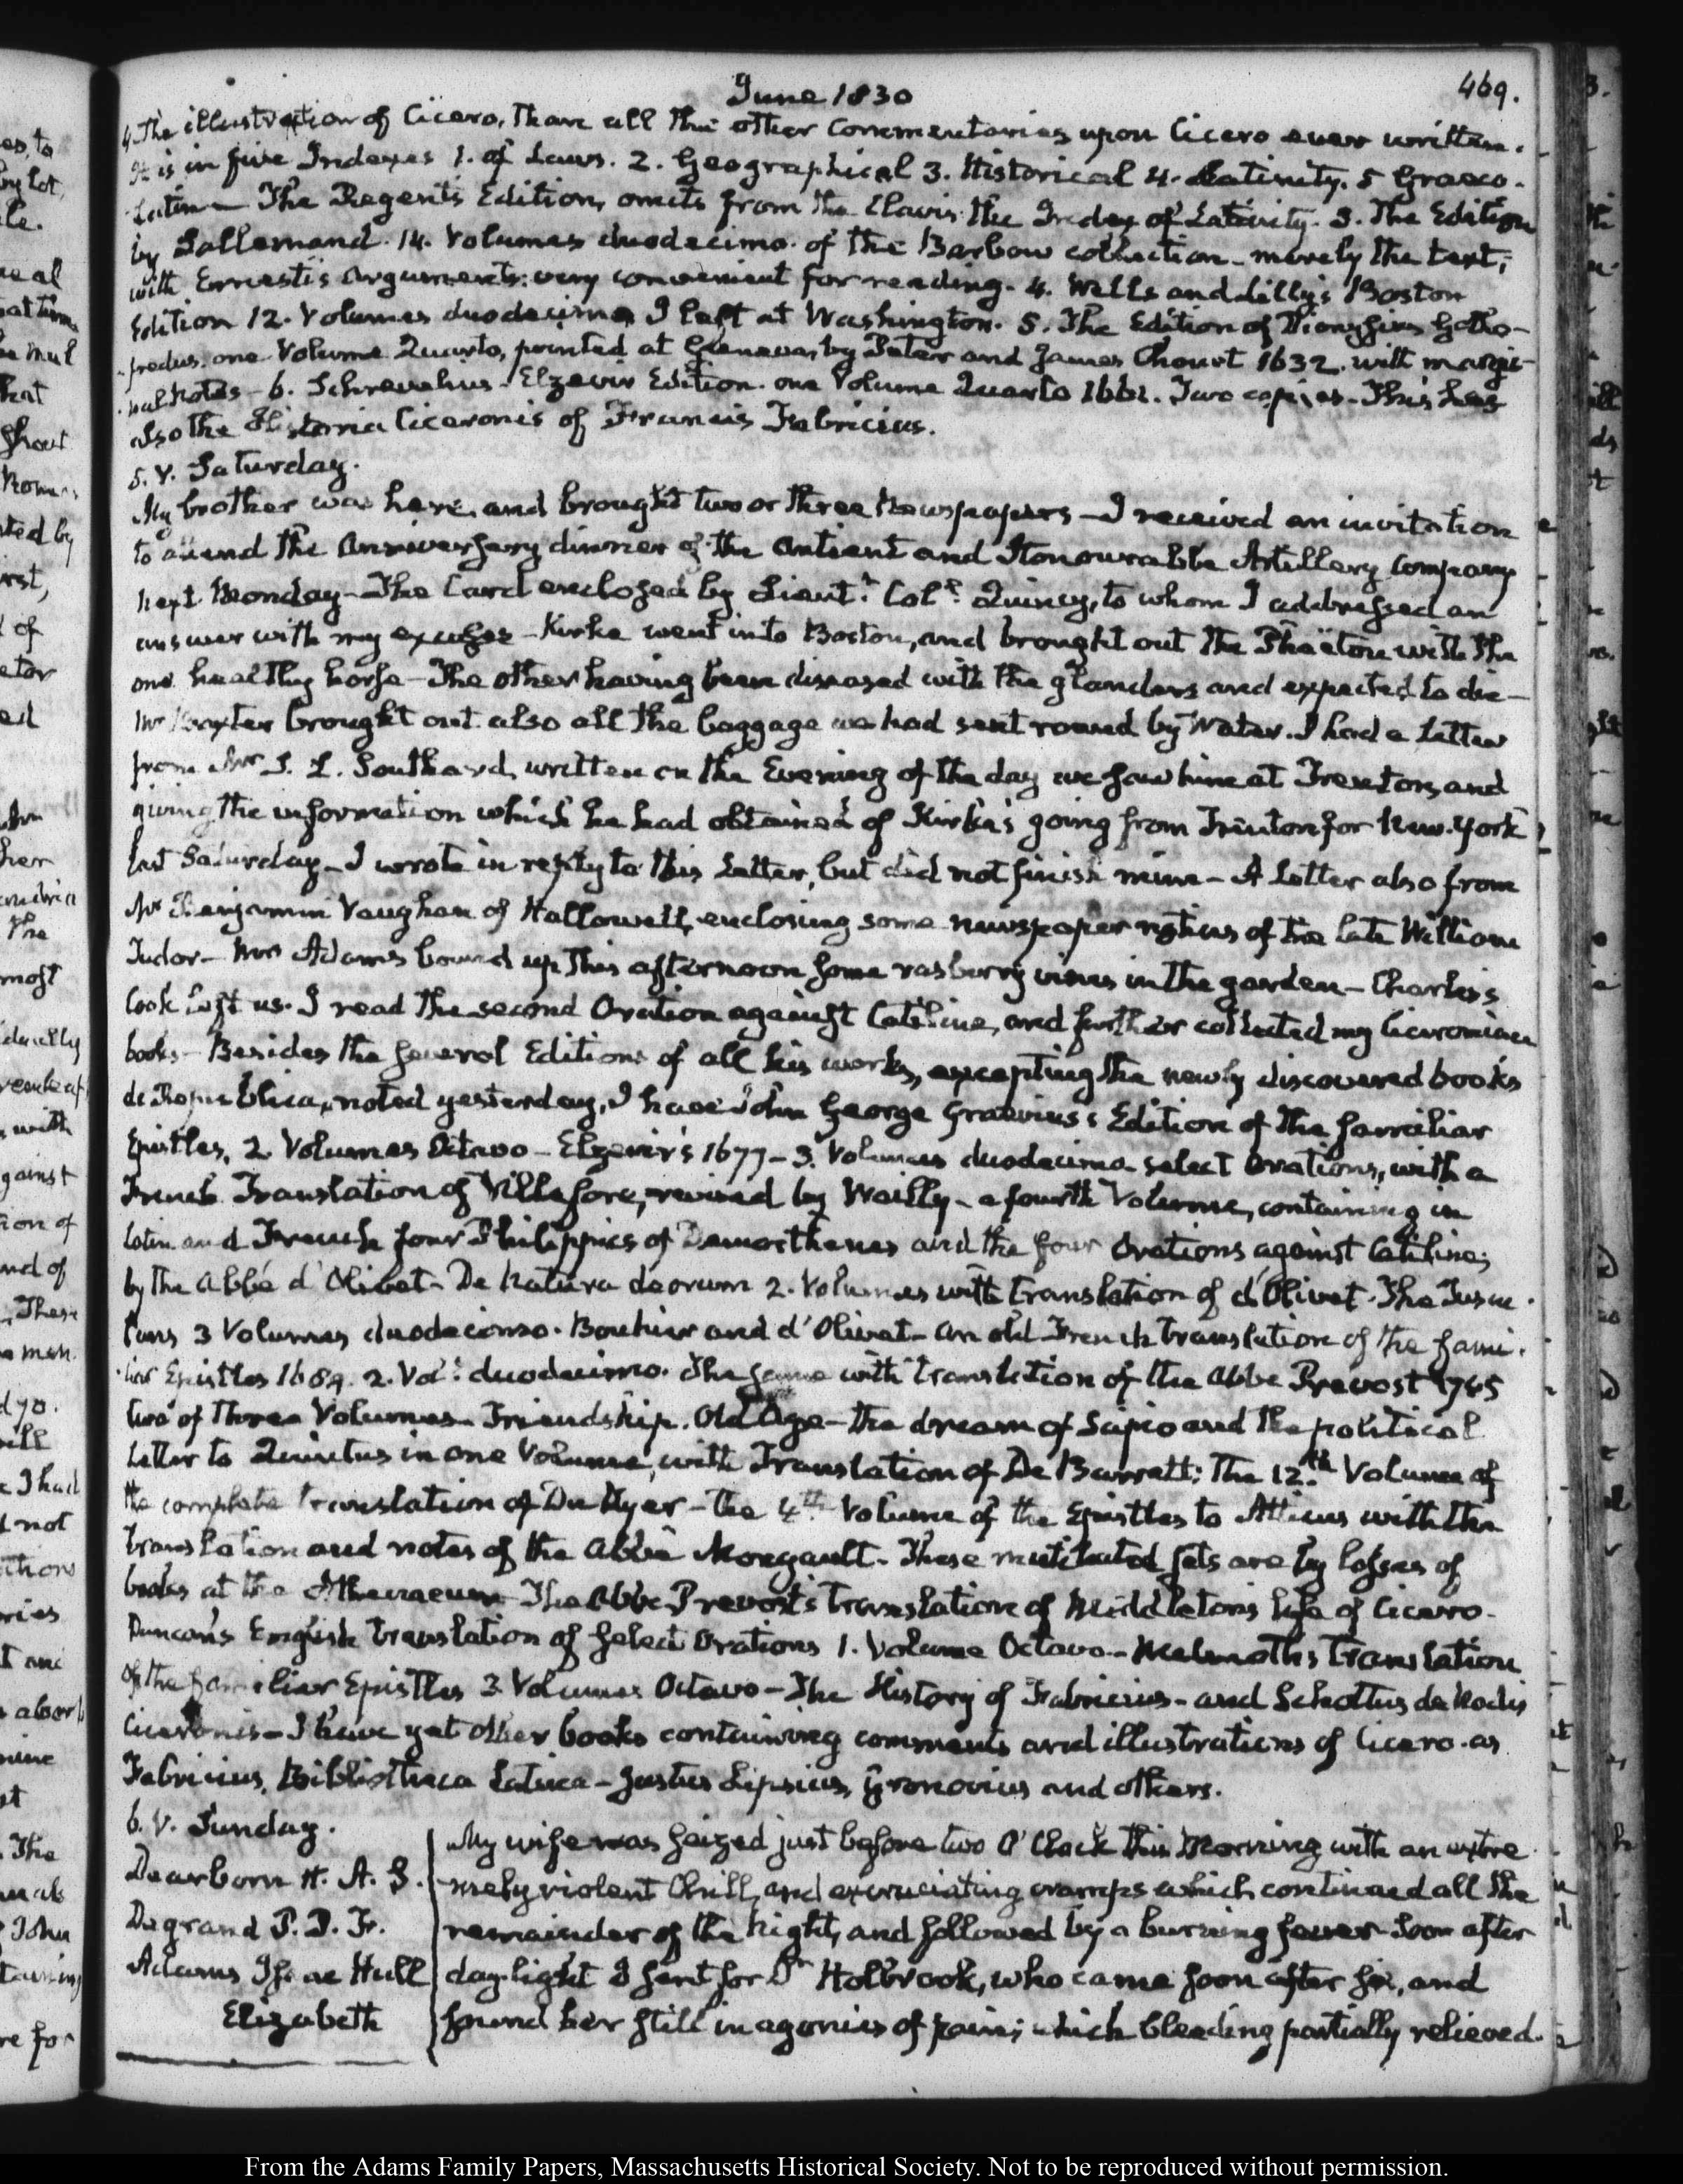 June 1830
469.
4. The illustration of Cicero, than all the other Commentaries upon Cicero ever written.
It is in five Indexes 1. of Laws. 2. Geographical 3. Historical 4. Latinity. 5 Graeco-
Latin — The Regent's Edition, omits from the Clavis the Index of Latinity. 3. The Edition
by Lallemand. 14. Volumes duodecimo. of the Barbou collection — merely the text,
with Ernesti's arguments: very convenient for reading. 4. Wells and Lilly's Boston
Edition 12. Volumes duodecimo I left at Washington. 5. The Edition of Dionysius Gotho-
-fredus. one Volume Quarto, printed at Geneva, by Peter and James Chouet 1632. with margi-
-nal notes — 6. Schrevelius. Elzevir Edition. one Volume Quarto 1661. Two copies — This has
also the Historia Ciceronis of Francis Fabricius.
5. V. Saturday.
My brother was here, and brought two or three Newspapers — I received an invitation
to attend the Anniversary dinner of the Antient and Honourable Artillery Company
next Monday — The Card enclosed by Lieut.t Col.l Quincy, to whom I addressed an
answer with my excuse — Kirke went into Boston, and brought out the Phaëton with the
one healthy horse — The other having been diseased with the glanders and expected to die —
Mr Baxter brought out also all the baggage we had sent round by Water. I had a Letter
from Mr S. L. Southard, written on the Evening of the day we saw him at Trenton, and
giving the information which he had obtained of Kirke's going from Trenton for New-York
last Saturday — I wrote in reply to this Letter, but did not finish mine — A Letter also from
Mr Benjamin Vaughan of Hallowell, enclosing some newspaper notices of the late William
Tudor — Mrs Adams bound up this afternoon some rasberry vines in the garden — Charles's
Cook left us. I read the second Oration against Catiline, and further collected my Ciceronian
books — Besides the several Editions of all his works, excepting the newly discovered books
de Republica, noted yesterday, I have John George Graevius's Edition of the familiar
Epistles, 2. Volumes Octavo — Elzevir's 1677 — 3. Volumes duodecimo select Orations, with a
French Translation of Villefore, revised by Wailly — a fourth Volume, containing in
Latin and French four Philippics of Demosthenes and the four Orations against Catiline;
by the Abbé d'Olivet — De Natura deorum 2. Volumes with translation of d'Olivet. The Tuscu-
lans 3 Volumes duodecimo. Bouhier and d'Olivet — An old French translation of the fami-
-liar Epistles 1689. 2. Vol.s duodecimo. The same with translation of the Abbe Prevost 1745
two of three Volumes — Friendship. Old Age — the dream of Scipio and the political
Letter to Quintus in one Volume, with Translation of De Barrett; The 12.th Volume of
the complete translation of Du Ryer — the 4.th Volume of the Epistles to Atticus with the
translation and notes of the Abbé Mongault — These mutilated sets are by losses of
books at the Athenaeum — The Abbe Prevost's translation of Middleton's life of Cicero —
Duncan's English translation of select Orations 1. Volume Octavo — Melmoth's Translation
of the familiar Epistles 3 Volumes Octavo — The History of Fabricius — and Schottus de Nodis
Ciceronis — I have yet other books containing comments and illustrations of Cicero. as
Fabricius, Bibliotheca Latina — Justus Lipsius, Gronovius and others.
6. V. Sunday.
Dearborn H. A. S.
Degrand P. P. F.
Adams Isaac Hull
Elizabeth
My wife was seized just before two O'Clock this Morning with an extre-
-mely violent Chill, and excruciating cramps which continued all the
remainder of the Night, and followed by a burning fever — Soon after
daylight I sent for Dr Holbrook, who came soon after six, and
found her still in agonies of pain; which bleeding partially relieved.
From the Adams Family Papers, Massachusetts Historical Society. Not to be reproduced without permission.